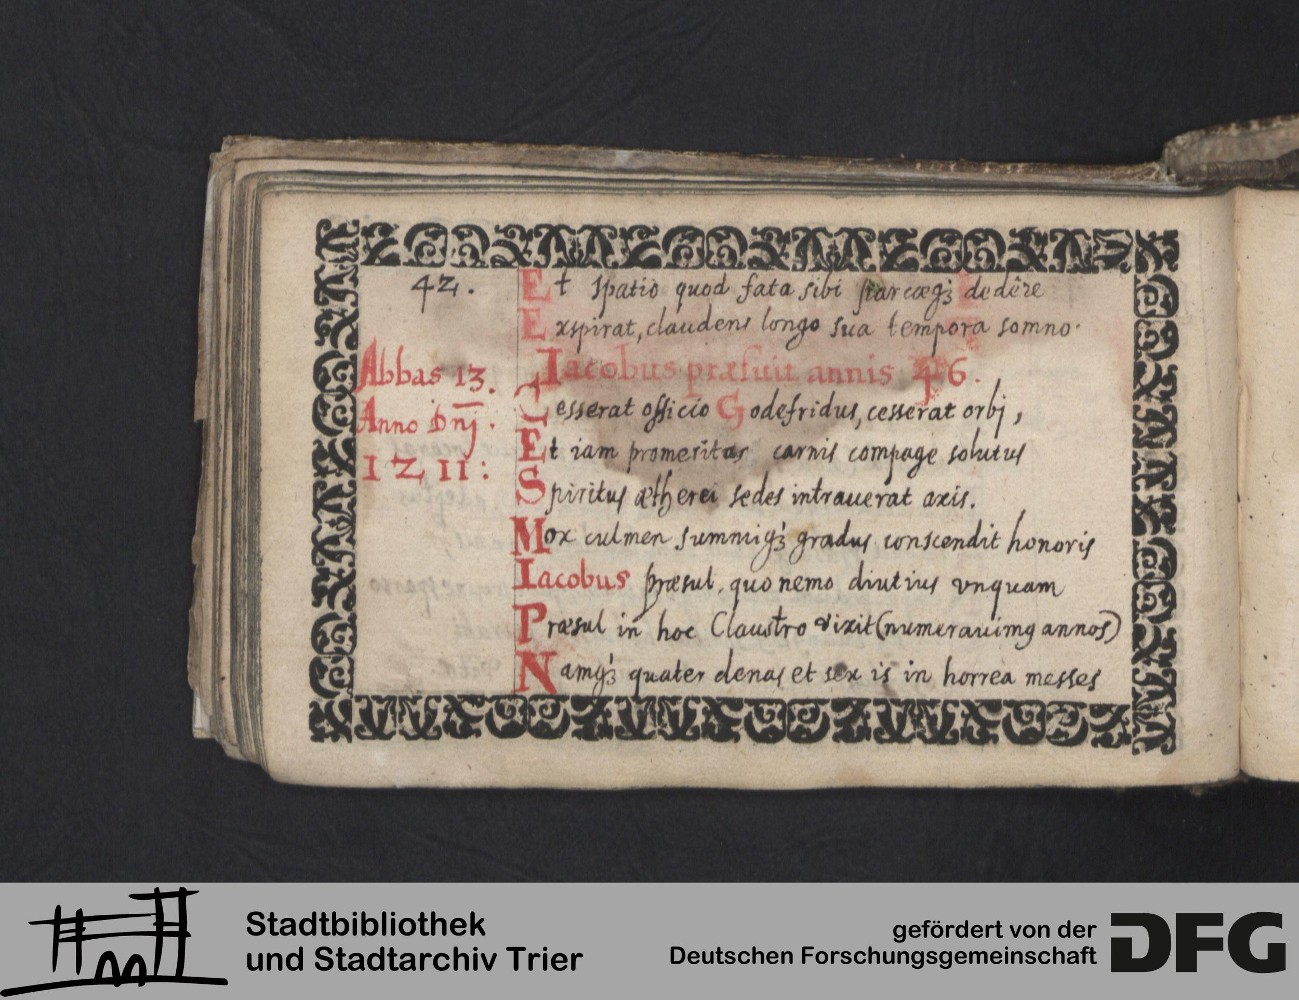 42.
Et spatio quod fata sibi parcæq; dedêre
Expirat, claudens longo sua tempora somno.
Abbas 13.
Anno Dnj.
1211:
Iacobus præfuit annis 46.
Cesserat officio Godefridus, cesserat orbj,
Et iam promeritas carnis compage solutus
Spiritus ætherei sedes intrauerat axis.
Mox culmen summiq; gradus conscendit honoris
Iacobus præsul, quo nemo diutius vnquam
Præsul in hoc Claustro vixit (numerauimq annos)
Namq; quater denas et sex is in horrea messes
Stadtbibliothek
und Stadtarchiv Trier
gefördert von der
Deutschen Forschungsgemeinschaft
DFG